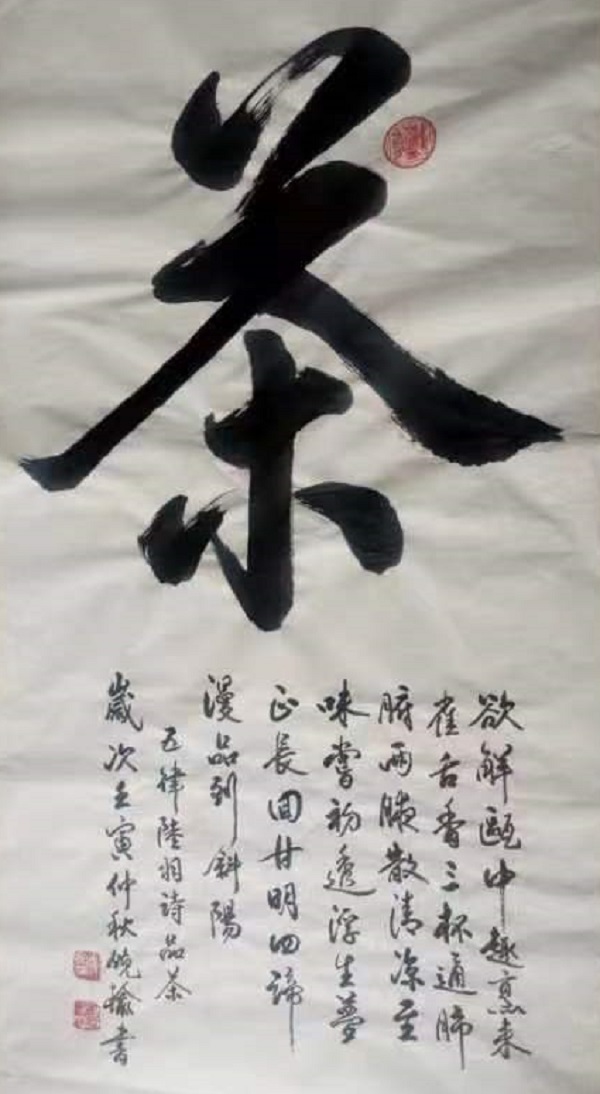 茶
欲解甌中趣烹来
雀舌香三杯通肺
腑兩腋散清涼至
味嘗初透浮生夢
正長回甘明四諦
漫品到斜陽
五律陸羽詩品茶
歲次壬寅仲秋饶瑜書